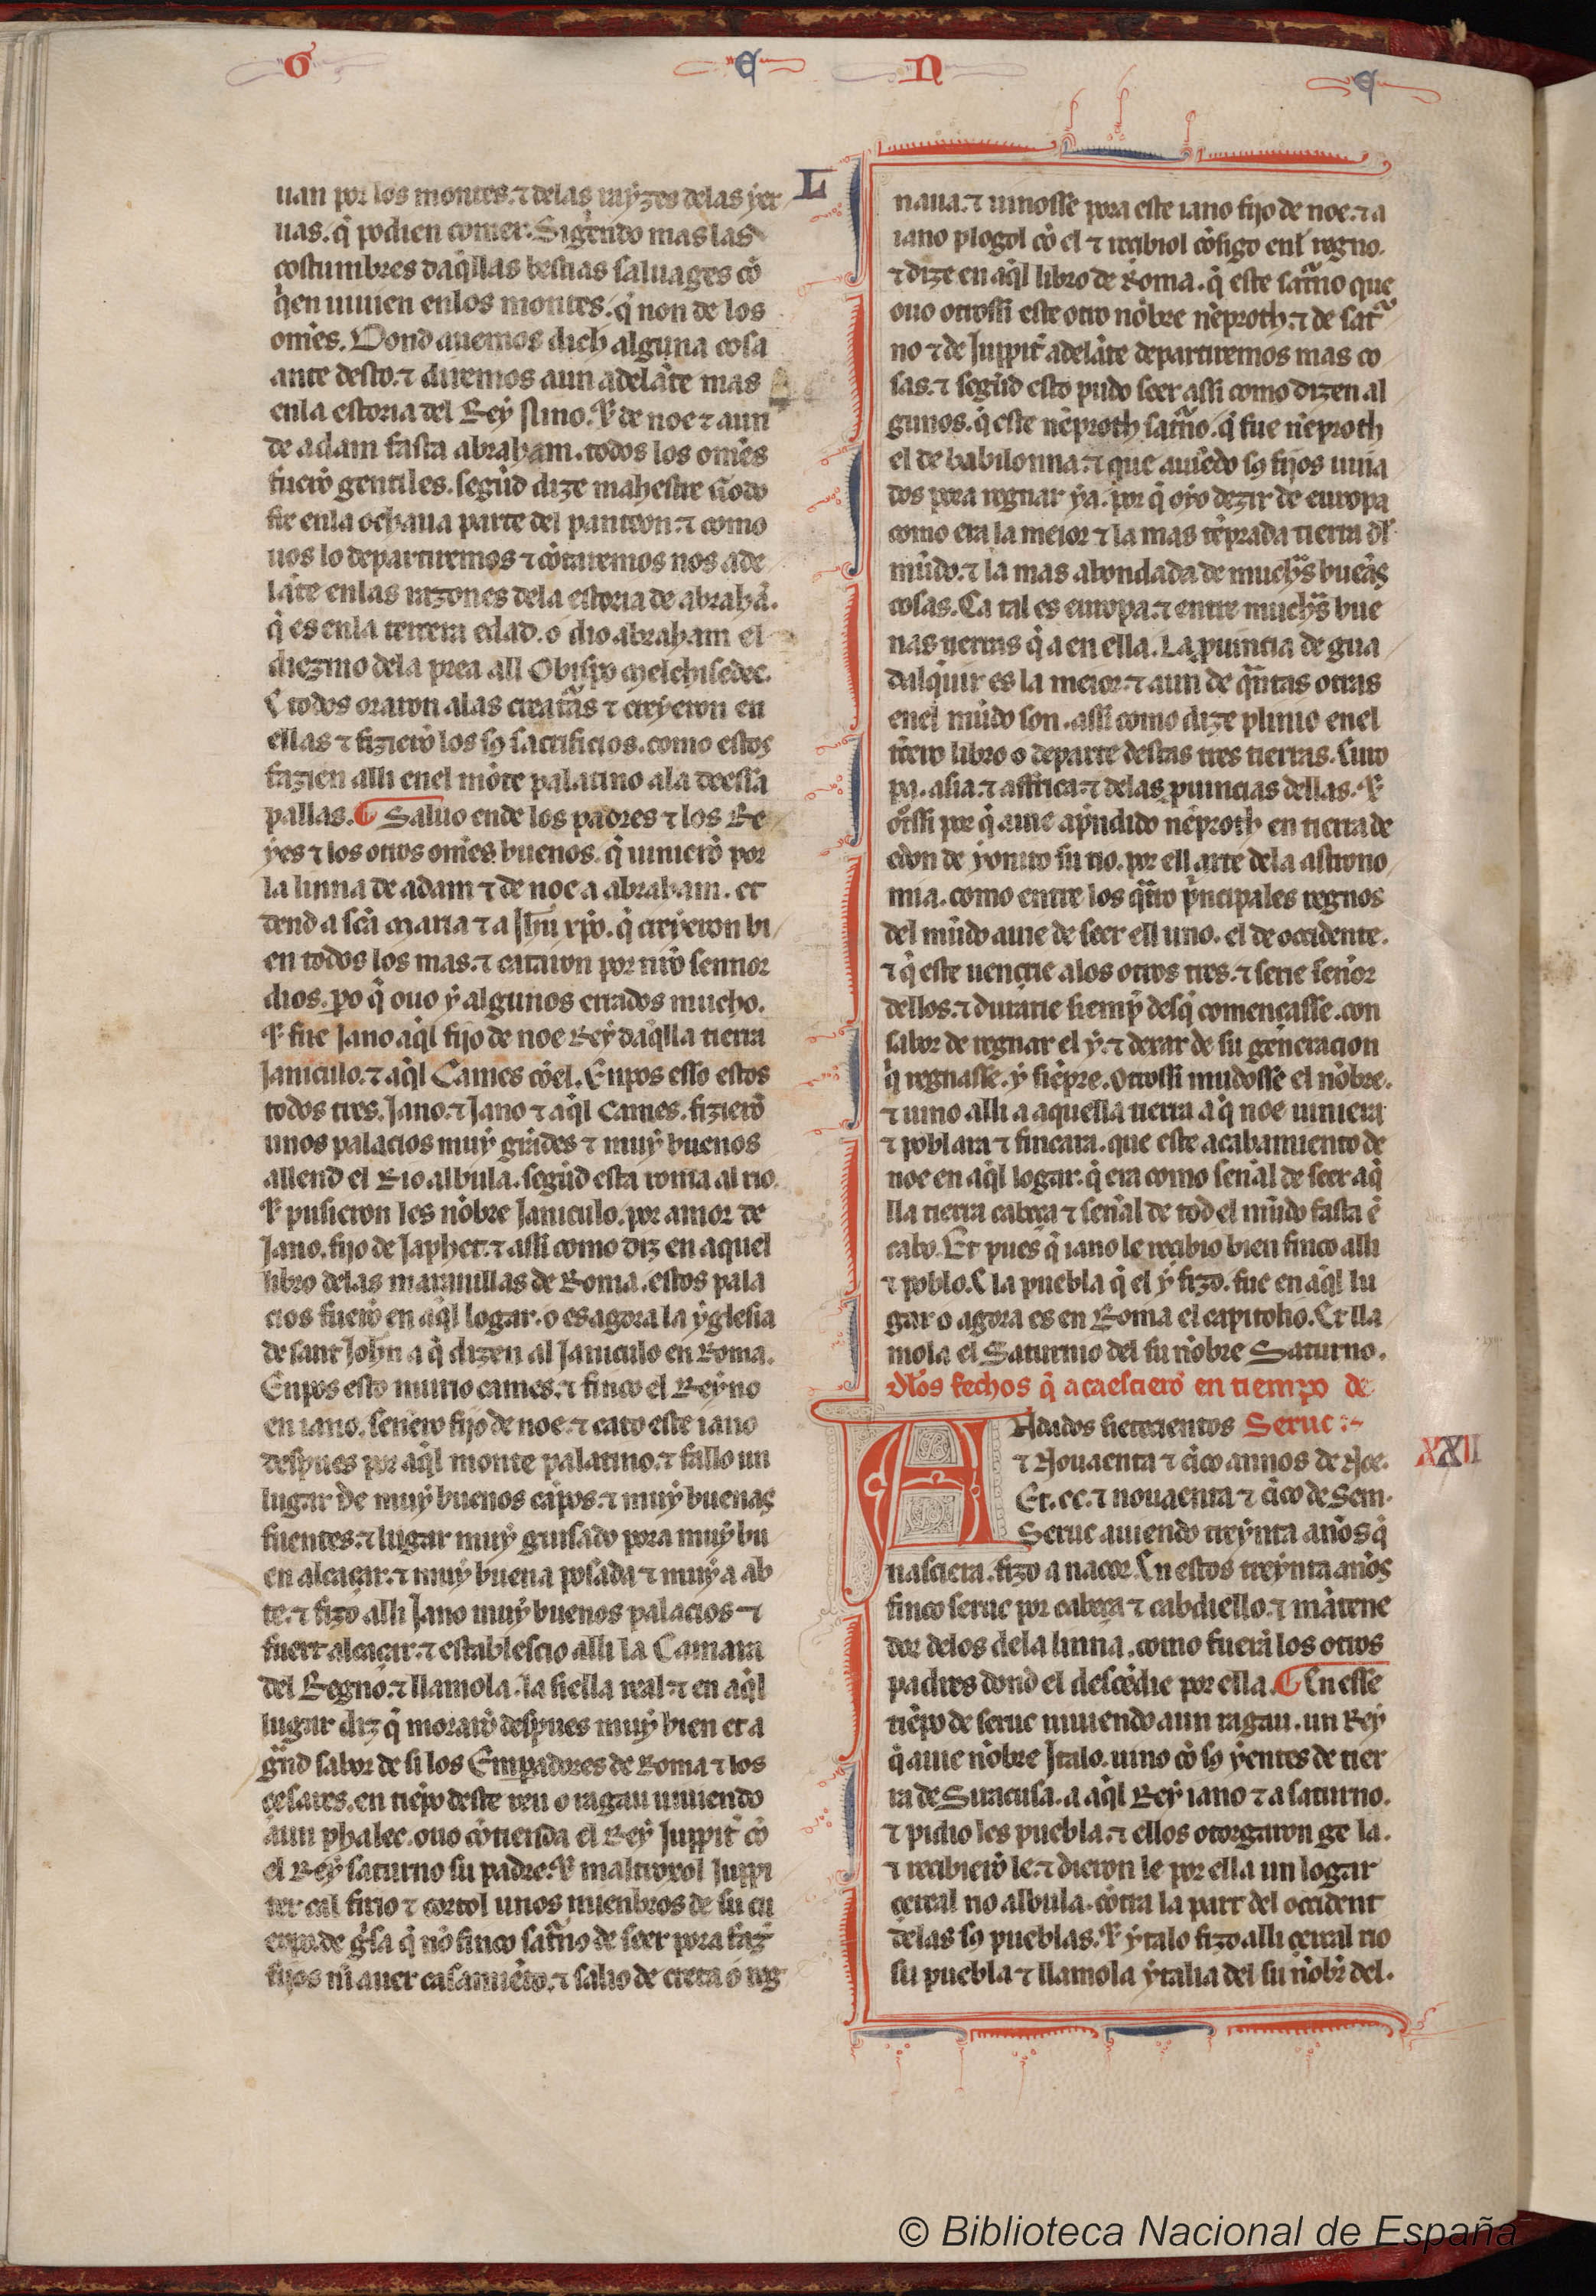 G E N E
L
uan por los montes. ⁊ delas rayzes delas yer
uas. q̃ podien comer. Siguẽdo mas las
costumbres daq̃llas bestias saluages cõ
q̃en uiuien enlos montes. q̃ non de los
omẽs. Dond auemos dich alguna cosa
ante desto. ⁊ diremos aun adelãte mas
enla estoria del Rey Nino. Et de noe ⁊ aun
de adam fasta abraham. todos los omẽs
fuerõ gentiles. segũd dize mahestre Godo
fre enla ochaua parte del panteon ⁊ como
uos lo departiremos ⁊ cõtaremos nos ade
lãte enlas razones dela estoria de abrahã.
q̃ es enla tercera edad. o dio abraham el
diezmo dela prea all Obispo Melchisedec.
E todos oraron alas creatãs ⁊ creyeron en
ellas ⁊ fizierõ los sꝯ sacrificios. como estos
fazien alli enel mõte palatino ala deessa
pallas. ¶ Saluo ende los padres ⁊ los Re
yes ⁊ los otros omẽs buenos. q̃ uinierõ por
la linna de adam ⁊ de noe a abraham. et
dend a scã Maria ⁊ a Jhũ xpõ. q̃ creyeron bi
en todos los mas. ⁊ cataron por nrõ sennor
dios. po q̃ ouo y algunos errados mucho.
Et fue Jano aq̃l fijo de noe Rey daq̃lla tierra
Janiculo. ⁊ aq̃l Cames cõel. Enpos esso estos
todos tres. Jano. ⁊ Jano ⁊ aq̃l Cames. fizierõ
unos palacios muy grãdes ⁊ muy buenos
allend el Rio albula. segũd esta roma al rio.
Et pusieron les nõbre Janiculo. por amor de
Jano. fijo de Japhet. ⁊ assi como diz en aquel
libro delas marauillas de Roma. estos pala
cios fuerõ en aq̃l logar. o es agora la yglesia
de sant John a q̃ dizen al Janiculo en Roma.
Enpos esto murio cames. ⁊ finco el Reyno
en iano. sennero fijo de noe. ⁊ cato este iano
despues por aq̃l monte palatino. ⁊ fallo un
lugar de muy buenos cãpos. ⁊ muy buenas
fuentes. ⁊ lugar muy guisado pora muy bu
en alcaçar. ⁊ muy buena posada ⁊ muy a ab
te. ⁊ fizo alli Jano muy buenos palacios ⁊
fuert alcaçar. ⁊ establescio alli la Camara
del Regno. ⁊ llamola. la siella real ⁊ en aq̃l
lugar diz q̃ morarõ despues muy bien et a
grãd sabor de si los Empadores de Roma ⁊ los
çesares. en tiẽpo deste reu o ragau uiuiendo
aun phalec. ouo cõtienda el Rey Juppit̃ cõ
el Rey saturno su padre. Et maltroxol Juppi
ter cal firio ⁊ cortol unos mienbros de su cu
erpo. de g̃sa q̃ nõ finco sat̃no de seer pora faz̃
fijos nĩ auer casamiẽto. ⁊ salio de creta o reg
naua. ⁊ uinosse pora este iano fijo de noe. ⁊ a
iano plogol cõ el ⁊ recibiol cõsigo enl̃ regno.
⁊ dize en aq̃l libro de Roma. q̃ este sat̃no que
ouo otrossi este otro nõbre nẽproth. ⁊ de sat̃
no ⁊ de Juppit̃ adelãte departiremos mas co
sas. ⁊ segũd esto pudo seer assi como dizen al
gunos. q̃ este nẽproth sat̃no. q̃ fue nẽproth
el de babilonna. ⁊ que auiẽdo sꝯ fijos uuia
dos pora regnar ya. por q̃ oyo dezir de europa
como era la meior ⁊ la mas tẽprada tierra dl̃
mũdo. ⁊ la mas abondada de muchãs buẽas
cosas. Ca tal es europa. ⁊ entre muchãs bue
nas tierras q̃ a en ella. La puincia de gua
dalq̃uir es la meior. ⁊ aun de q̃ntas otras
enel mũdo son. assi como dize plinio enel
t̃cero libro o departe destas tres tierras. Euro
pa. asia. ⁊ affrica. ⁊ delas puincias dellas. Et
ot̃ssi por q̃ auie ap̃ndido nẽproth en tierra de
edon de yonito su tio. por ell arte dela astrono
mia. como entre los q̃tro p̃ncipales regnos
del mũdo auie de seer ell uno. el de occidente.
⁊ q̃ este uençrie alos otros tres. ⁊ serie señor
dellos. ⁊ durarie siemp̃ desq̃ començasse. con
sabor de regnar el y. ⁊ dexar de su generacion
q̃ regnasse. y siẽpre. Otrossi mudosse el nõbre.
⁊ uino alli a aquella tierra a q̃ noe uiniera
⁊ poblara ⁊ fincara. que este acabamiento de
noe en aq̃l logar. q̃ era como señal de seer aq̃
lla tierra cabeça ⁊ señal de tod el mũdo fasta ẽ
cabo. Et pues q̃ iano le recibio bien finco alli
⁊ poblo. E la puebla q̃ el y fizo. fue en aq̃l lu
gar o agora es en Roma el capitolio. Et lla
mola el Saturnio del su nõbre Saturno.
Dl̃os fechos q̃ acaescierõ en tiempo de
Seruc :~
XXII
Andados sietecientos
⁊ Nouaenta ⁊ cĩco annos de Noe.
Et. cc. ⁊ nouaenta ⁊ cĩco de Sem.
Seruc auiendo treynta años q̃
nasciera. fizo a nacor. En estos treynta años
finco seruc por cabeça ⁊ cabdiello. ⁊ mãtene
dor delos dela linna. como fuerã los otros
padres dond el descẽdie por ella. ¶ En esse
tiẽpo de seruc uiuiendo aun ragau. un Rey
q̃ auie nõbre Jtalo. uino cõ sꝯ yentes de tier
ra de Siracusa. a aq̃l Rey iano ⁊ a saturno.
⁊ pidio les puebla. ⁊ ellos otorgaron ge la.
⁊ recibierõ le. ⁊ dieron le por ella un logar
cercal rio albula. cõtra la part del occident
delas sꝯ pueblas. Et ytalo fizo alli cercal rio
su puebla ⁊ llamola ytalia del su nõbr̃ del.
© Biblioteca Nacional de España